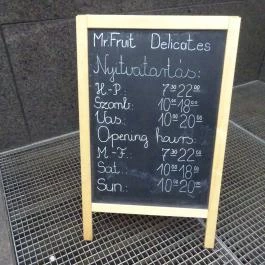 Mr.Fruit Delicates
Nyitvatartás:
H-P: 7³⁰ 22⁰⁰
Szomb: 10⁰⁰ 18⁰⁰
Vas: 10⁰⁰ 20⁰⁰
Opening hours:
M.-F.: 7³⁰ 22⁰⁰
Sat.: 10⁰⁰ 18⁰⁰
Sun.: 10⁰⁰ 20⁰⁰